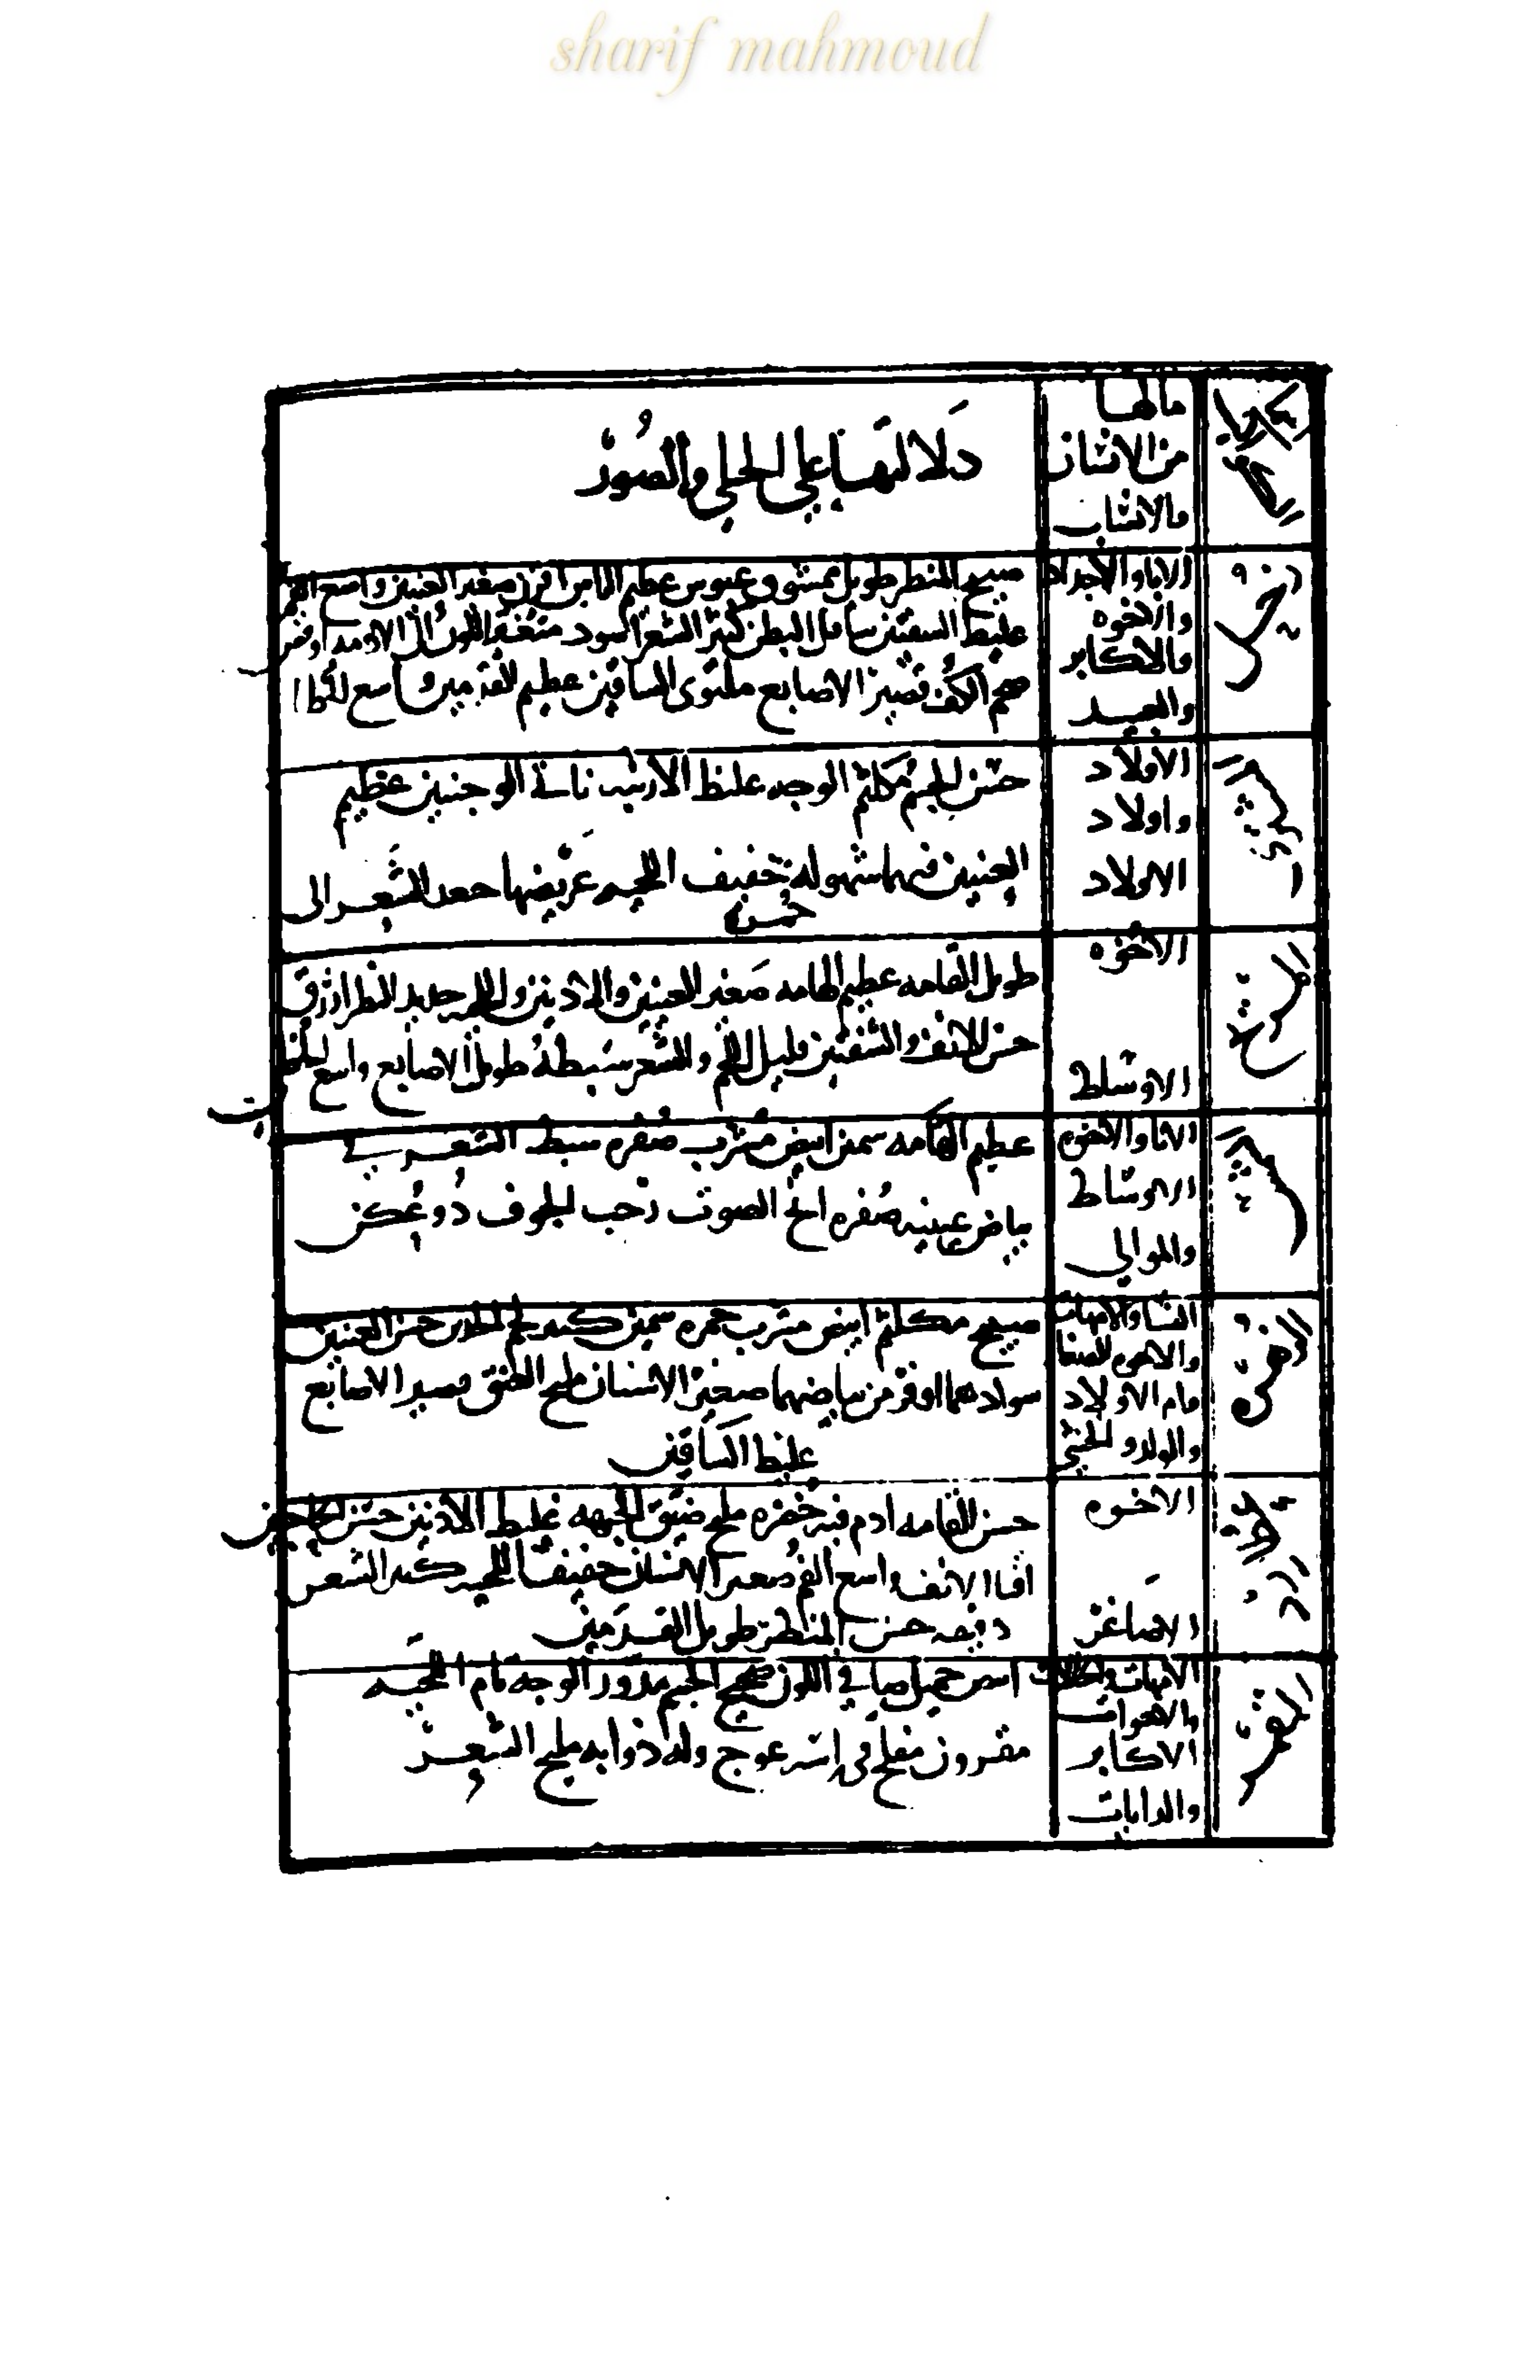 sharif mahmoud
الكواكب
مالها
من الانسان
والانساب
دَلالتها علي الحلي والصُور
زحل
الاباء والاجداد
والاخوه
والاكابر
والعبيد
المنظر طويل ممشوق عبوس عظيم الراس اقرن صغير العينين واسع الفم
غليظ الشفتين البطن كثير الشعر اسود اللون الى الادمه
ضخم الكف قصير الاصابع ملتوى الساقين عظيم القدمين واسع الخطا
المشتري
الاولاد
واولاد
الاولاد
حسن الجسم مكلثم الوجه غليظ الارنبه ناتئ الوجنتين عظيم
العينين فيهما شهوله خفيف اللحيه عريضها جعد الشعر الى
حمره
المريخ
الاخوه
الاوساط
طويل القامه عظيم الهامه صغير العينين والاذنين حديد النظر ازرق
حسن الانف والشفتين قليل اللحم والشعر سبطه طويل الاصابع واسع الخطا
الشمس
الابا والاخوه
الاوساط
والموالي
عظيم الهامه سمين ابيض مشرب صفره سبط الشعر في
بياض عينيه صفره ابح الصوت رحب الجوف ذو عُكن
الزهره
النسا والامهات
والاخوه الصغا
وام الاولاد
والولد والخنثى
صبيح مكلثم ابيض مشرب حمره سمين كثير لحم الخدين حسن العينين
سوادهما اوفر من بياضهما صغير الاسنان مليح العنق قصير الاصابع
غليظ الساقين
عطارد
الاخوه
الاصاغر
حسن القامه ادم فيه خضره مليح ضيق الجبهه غليظ الاذنين حسن الحاجبين
اقنا الانف واسع الفم صغير الاسنان خفيف اللحيه كثير الشعر
حسن المنظر طويل القدمين
القمر
الامهات والخالات
والاخوات
الاكابر
والدايات
جميل صافي اللون صحيح الجسم مدور الوجه تام اللحيه
مقرون مفلج في راسه عوج وله ذوابه مليح الشعر